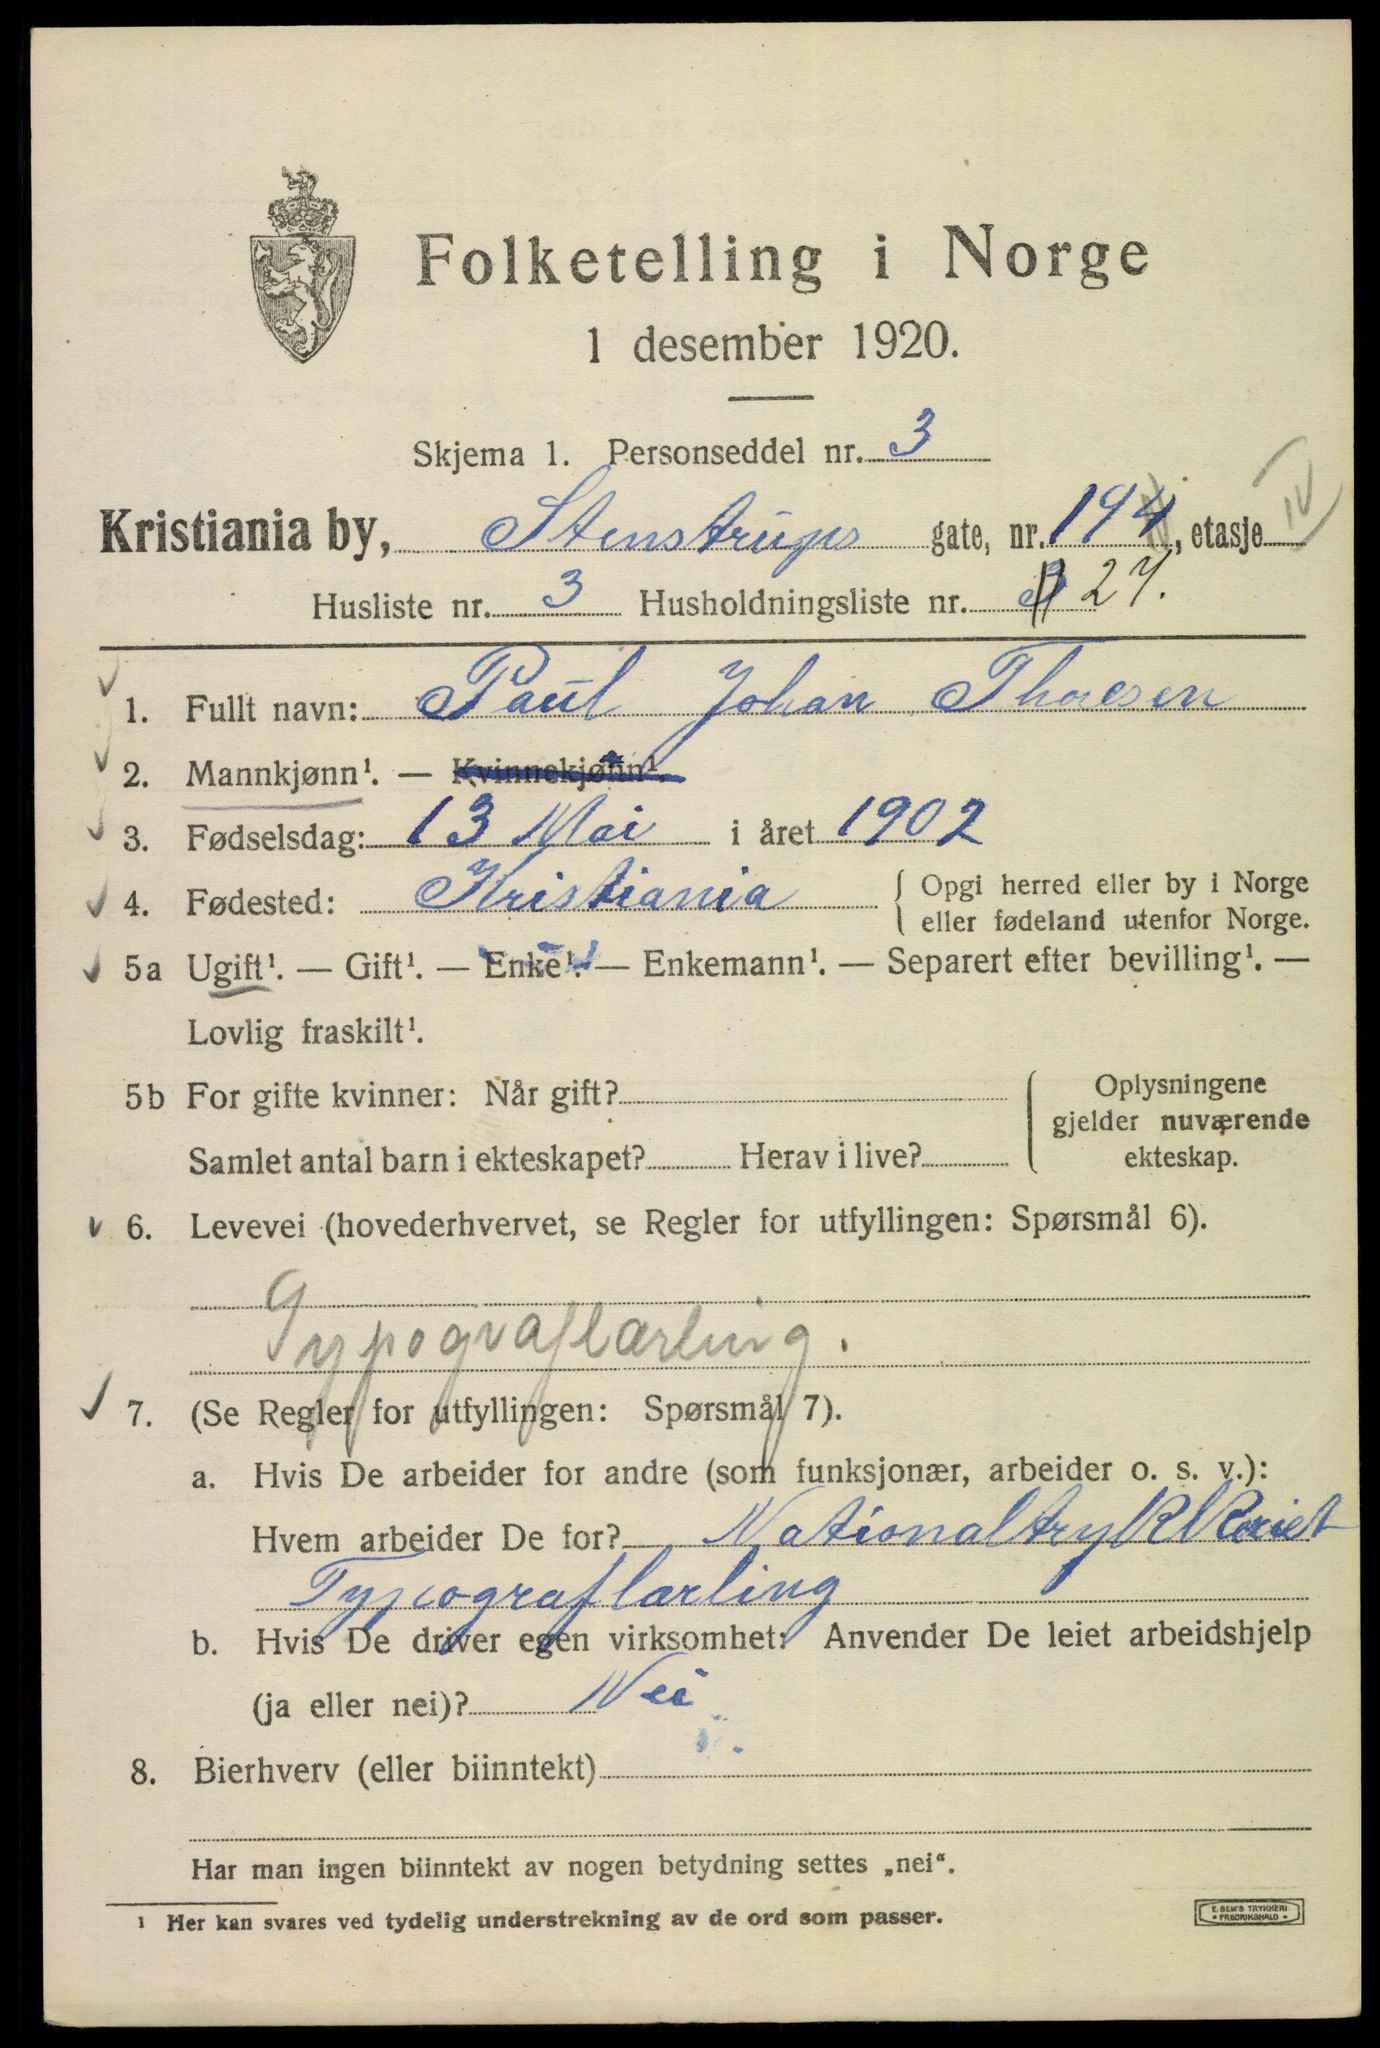 Folketelling i Norge
1 desember 1920.
Skjema 1. Personseddel nr. 3
Kristiania by, Stenstrups gate, nr. 19, etasje IV
Husliste nr. 3 Husholdningsliste nr. 27.
1. Fullt navn: Paul Johan Thoresen
2. Mannkjønn¹. — Kvinnekjønn¹.
3. Fødselsdag: 13 Mai i året 1902
4. Fødested: Kristiania { Opgi herred eller by i Norge
eller fødeland utenfor Norge.
5a Ugift¹. — Gift¹. — Enke¹. — Enkemann¹. — Separert efter bevilling¹. —
Lovlig fraskilt¹.
5b For gifte kvinner: Når gift? { Oplysningene
gjelder nuværende
Samlet antal barn i ekteskapet? Herav i live? ekteskap.
6. Levevei (hovederhvervet, se Regler for utfyllingen: Spørsmål 6).
Typograflærling.
7. (Se Regler for utfyllingen: Spørsmål 7).
a. Hvis De arbeider for andre (som funksjonær, arbeider o. s. v.):
Hvem arbeider De for? Nationaltrykkeriet
Typograflærling
b. Hvis De driver egen virksomhet: Anvender De leiet arbeidshjelp
(ja eller nei)? Nei
8. Bierhverv (eller biinntekt)
Har man ingen biinntekt av nogen betydning settes „nei“.
¹ Her kan svares ved tydelig understrekning av de ord som passer.
E. SEM'S TRYKKERI
• FREDRIKSHALD •